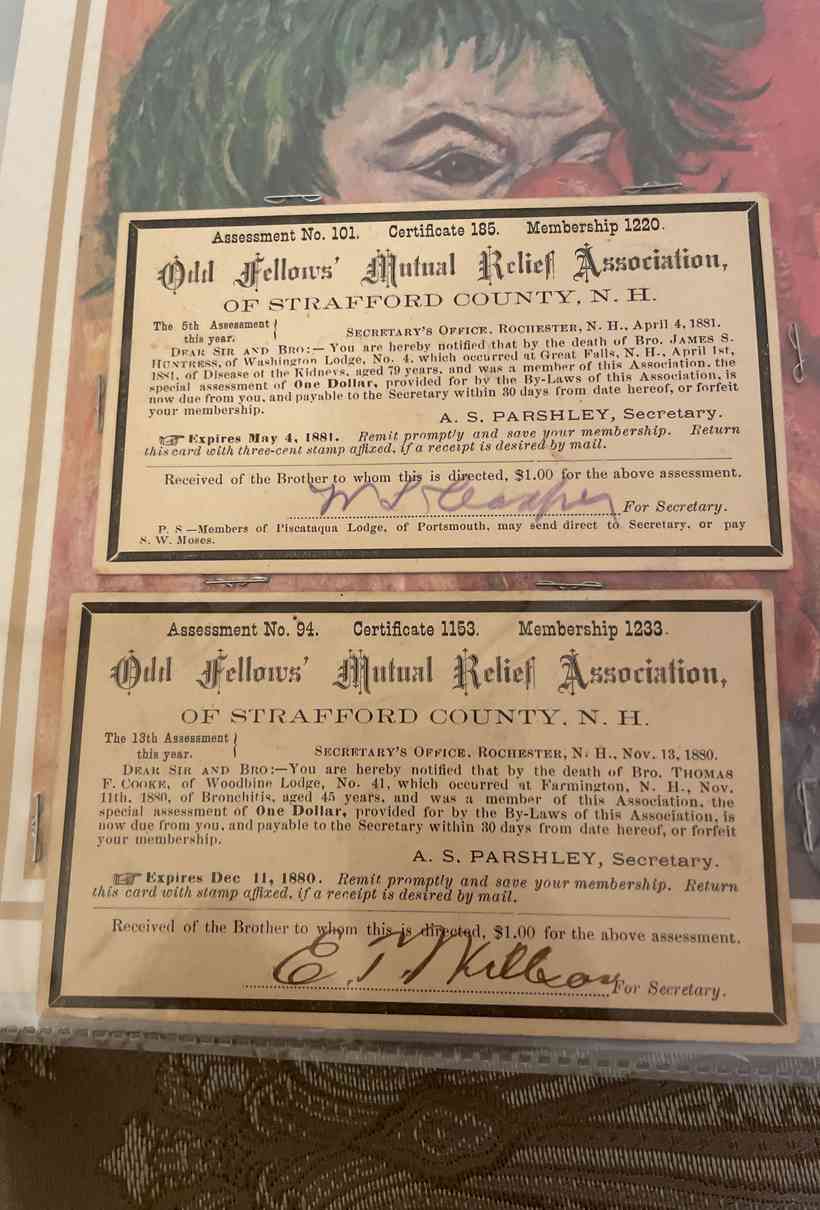 Assessment No. 101. Certificate 185. Membership 1220.
Odd Fellows' Mutual Relief Association,
OF STRAFFORD COUNTY, N. H.
The 5th Assessment
this year.
SECRETARY'S OFFICE, ROCHESTER, N. H., April 4, 1881.
DEAR SIR AND BRO:—You are hereby notified that by the death of Bro. JAMES S.
HUNTRESS, of Washington Lodge, No. 4, which occurred at Great Falls, N. H., April 1st,
1881, of Disease of the Kidneys, aged 79 years, and was a member of this Association, the
special assessment of One Dollar, provided for by the By-Laws of this Association, is
now due from you, and payable to the Secretary within 30 days from date hereof, or forfeit
your membership.
A. S. PARSHLEY, Secretary.
Expires May 4, 1881. Remit promptly and save your membership. Return
this card with three-cent stamp affixed, if a receipt is desired by mail.
Received of the Brother to whom this is directed, $1.00 for the above assessment.
For Secretary.
P. S—Members of Piscataqua Lodge, of Portsmouth, may send direct to Secretary, or pay
S. W. Moses.
Assessment No. 94. Certificate 1153. Membership 1233.
Odd Fellows' Mutual Relief Association,
OF STRAFFORD COUNTY, N. H.
The 13th Assessment
this year.
SECRETARY'S OFFICE, ROCHESTER, N. H., Nov. 13, 1880.
DEAR SIR AND BRO:—You are hereby notified that by the death of Bro. THOMAS
F. COOKE, of Woodbine Lodge, No. 41, which occurred at Farmington, N. H., Nov.
11th, 1880, of Bronchitis, aged 45 years, and was a member of this Association, the
special assessment of One Dollar, provided for by the By-Laws of this Association, is
now due from you, and payable to the Secretary within 30 days from date hereof, or forfeit
your membership.
A. S. PARSHLEY, Secretary.
Expires Dec 11, 1880. Remit promptly and save your membership. Return
this card with stamp affixed, if a receipt is desired by mail.
Received of the Brother to whom this is directed, $1.00 for the above assessment.
E. T. For Secretary.